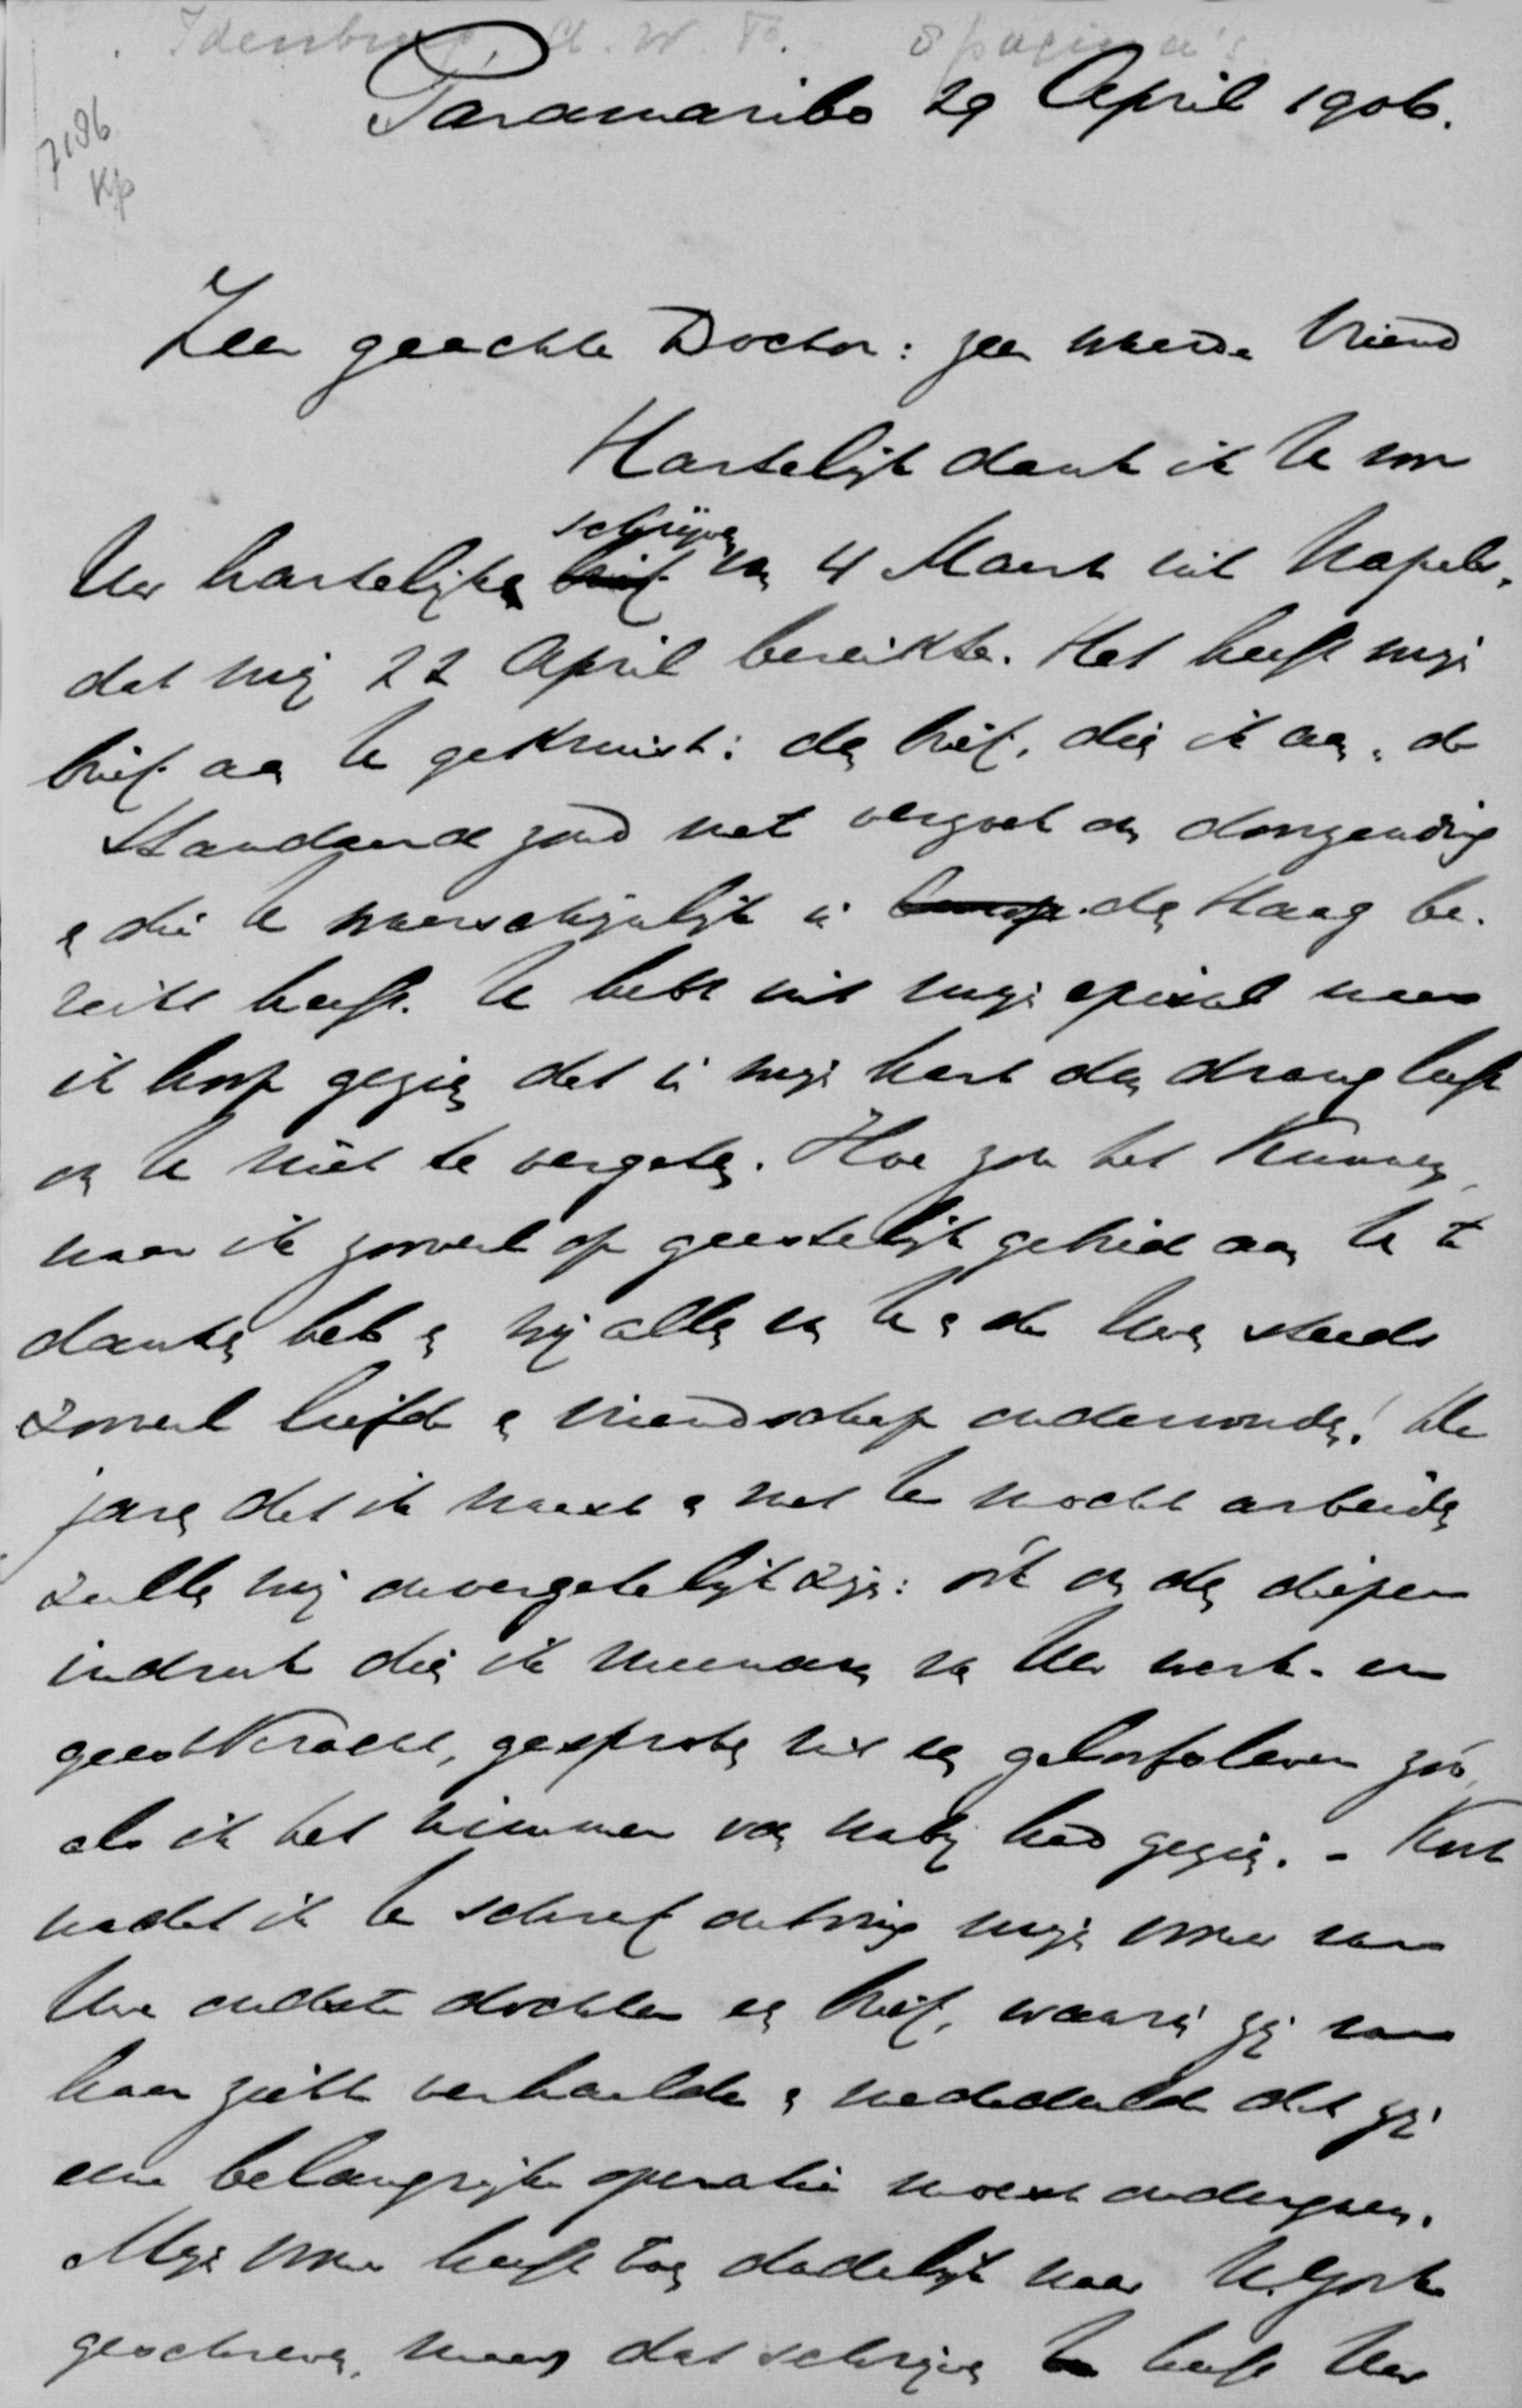 Idenburg, A. W. F. 8 pagina's
7186
Kp
Paramaribo 29 April 1906.
Zeer geachte Doctor: zeer waarde Vriend
Hartelijk dank ik U voor
schrijven
Uw hartelijke brief van 4 Maart uit Napels,
dat mij 22 April bereikte. Het heeft mijn
brief aan U gekruist: den brief, dien ik aan de
Standaard zond met verzoek om doorzending
en die U waarschijnlijk in Europa den Haag be-
reikt heeft. U hebt uit mijn epistel naar
ik hoop gezien dat in mijn hart den drang leeft
om U niet te vergeten. Hoe zou het kunnen,
waar ik zooveel op geestelijk gebied aan U te
danken heb en wij allen van U en de Uwen steeds
zooveel liefde en vriendschap ondervonden! De
jaren dat ik naast en met U mocht arbeiden
zullen mij onvergetelijk zijn: óók om den diepen
indruk dien ik meenam van Uw werk- en
geestkracht, gesproten uit een geloofsleven zóó,
als ik het nimmer van nabij had gezien. - Kort
nadat ik U schreef ontving mijn vrouw van
Uwe oudste dochter een brief, waarin zij van
haar ziekte verhaalde en mededeelde dat zij
eene belangrijke operatie moest ondergaan.
Mijn vrouw heeft toen dadelijk naar N.York
geschreven, maar dat schrijven heeft Uw